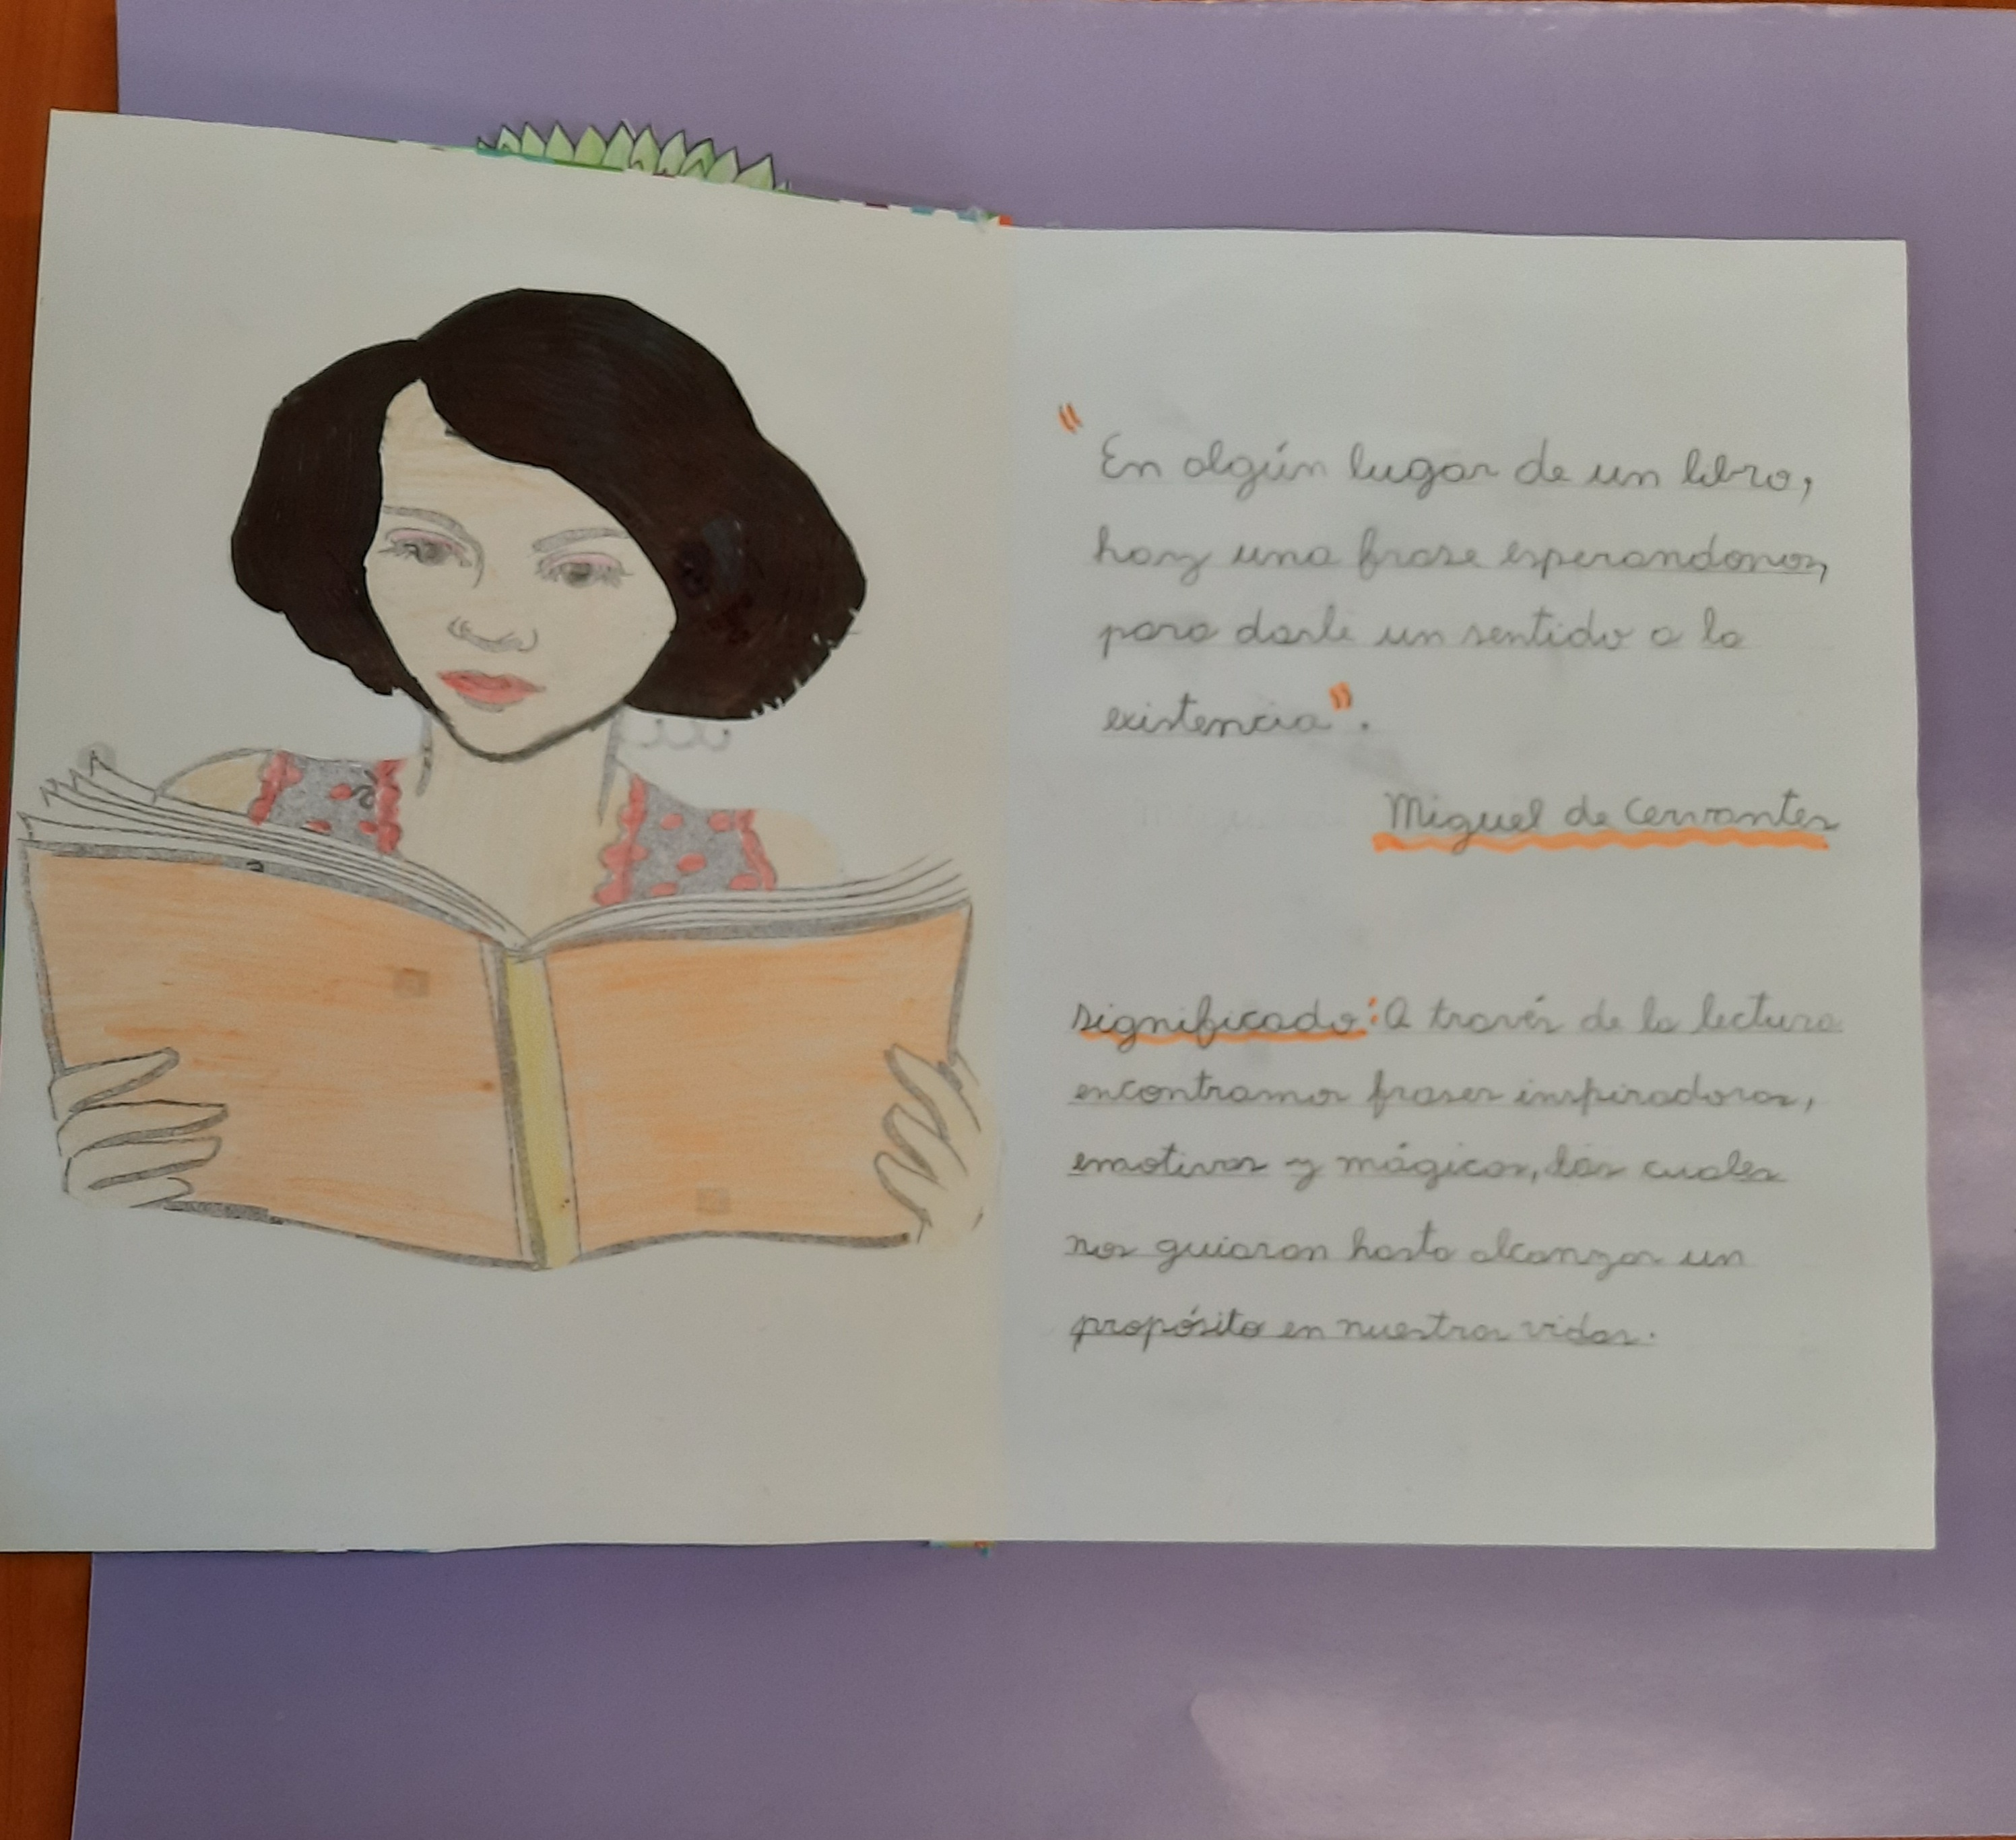 "En algún lugar de un libro,
hay una frase esperandonos,
para darle un sentido a la
existencia".
Miguel de Cervantes
significado: A través de la lectura
encontramos frases inspiradoras,
emotivas y mágicas, las cuales
nos guiaran hasta alcanzar un
propósito en nuestras vidas.